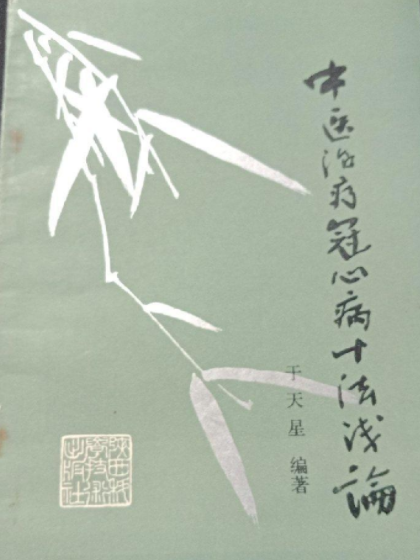 中医治疗冠心病十法浅論
于天星 编著
陕西科
学技术
出版社